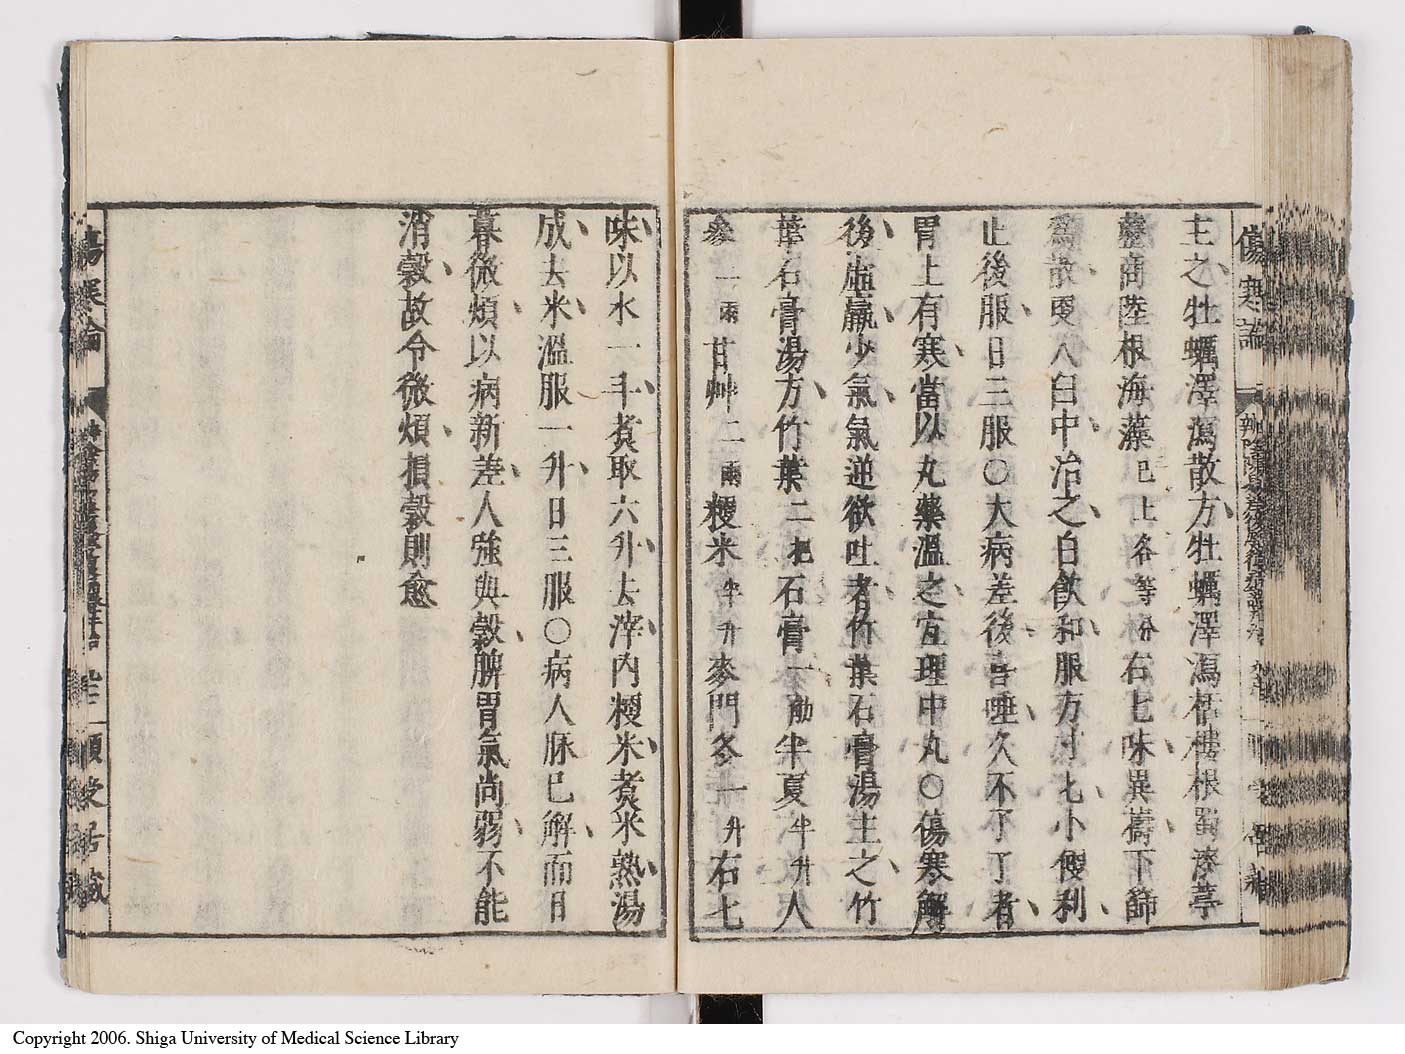 傷寒論
主之牡蠣澤瀉散方牡蠣澤瀉栝樓根蜀漆葶
藶商陸根海藻已上各等分右七味異擣下篩
爲散更入臼中治之白飲和服方寸匕小便利
止後服日三服〇大病差後喜唾久不了了者
胃上有寒當以丸藥溫之宜理中丸〇傷寒解
後虛羸少氣氣逆欲吐者竹葉石膏湯主之竹
葉石膏湯方竹葉二把石膏一觔半夏半升人
參一兩甘艸二兩粳米半升麥門冬一升右七
味以水一斗煮取六升去滓內粳米煮米熟湯
成去米溫服一升日三服〇病人脉已解而日
暮微煩以病新差人強與穀脾胃氣尚弱不能
消穀故令微煩損穀則愈
傷寒論
Copyright 2006. Shiga University of Medical Science Library